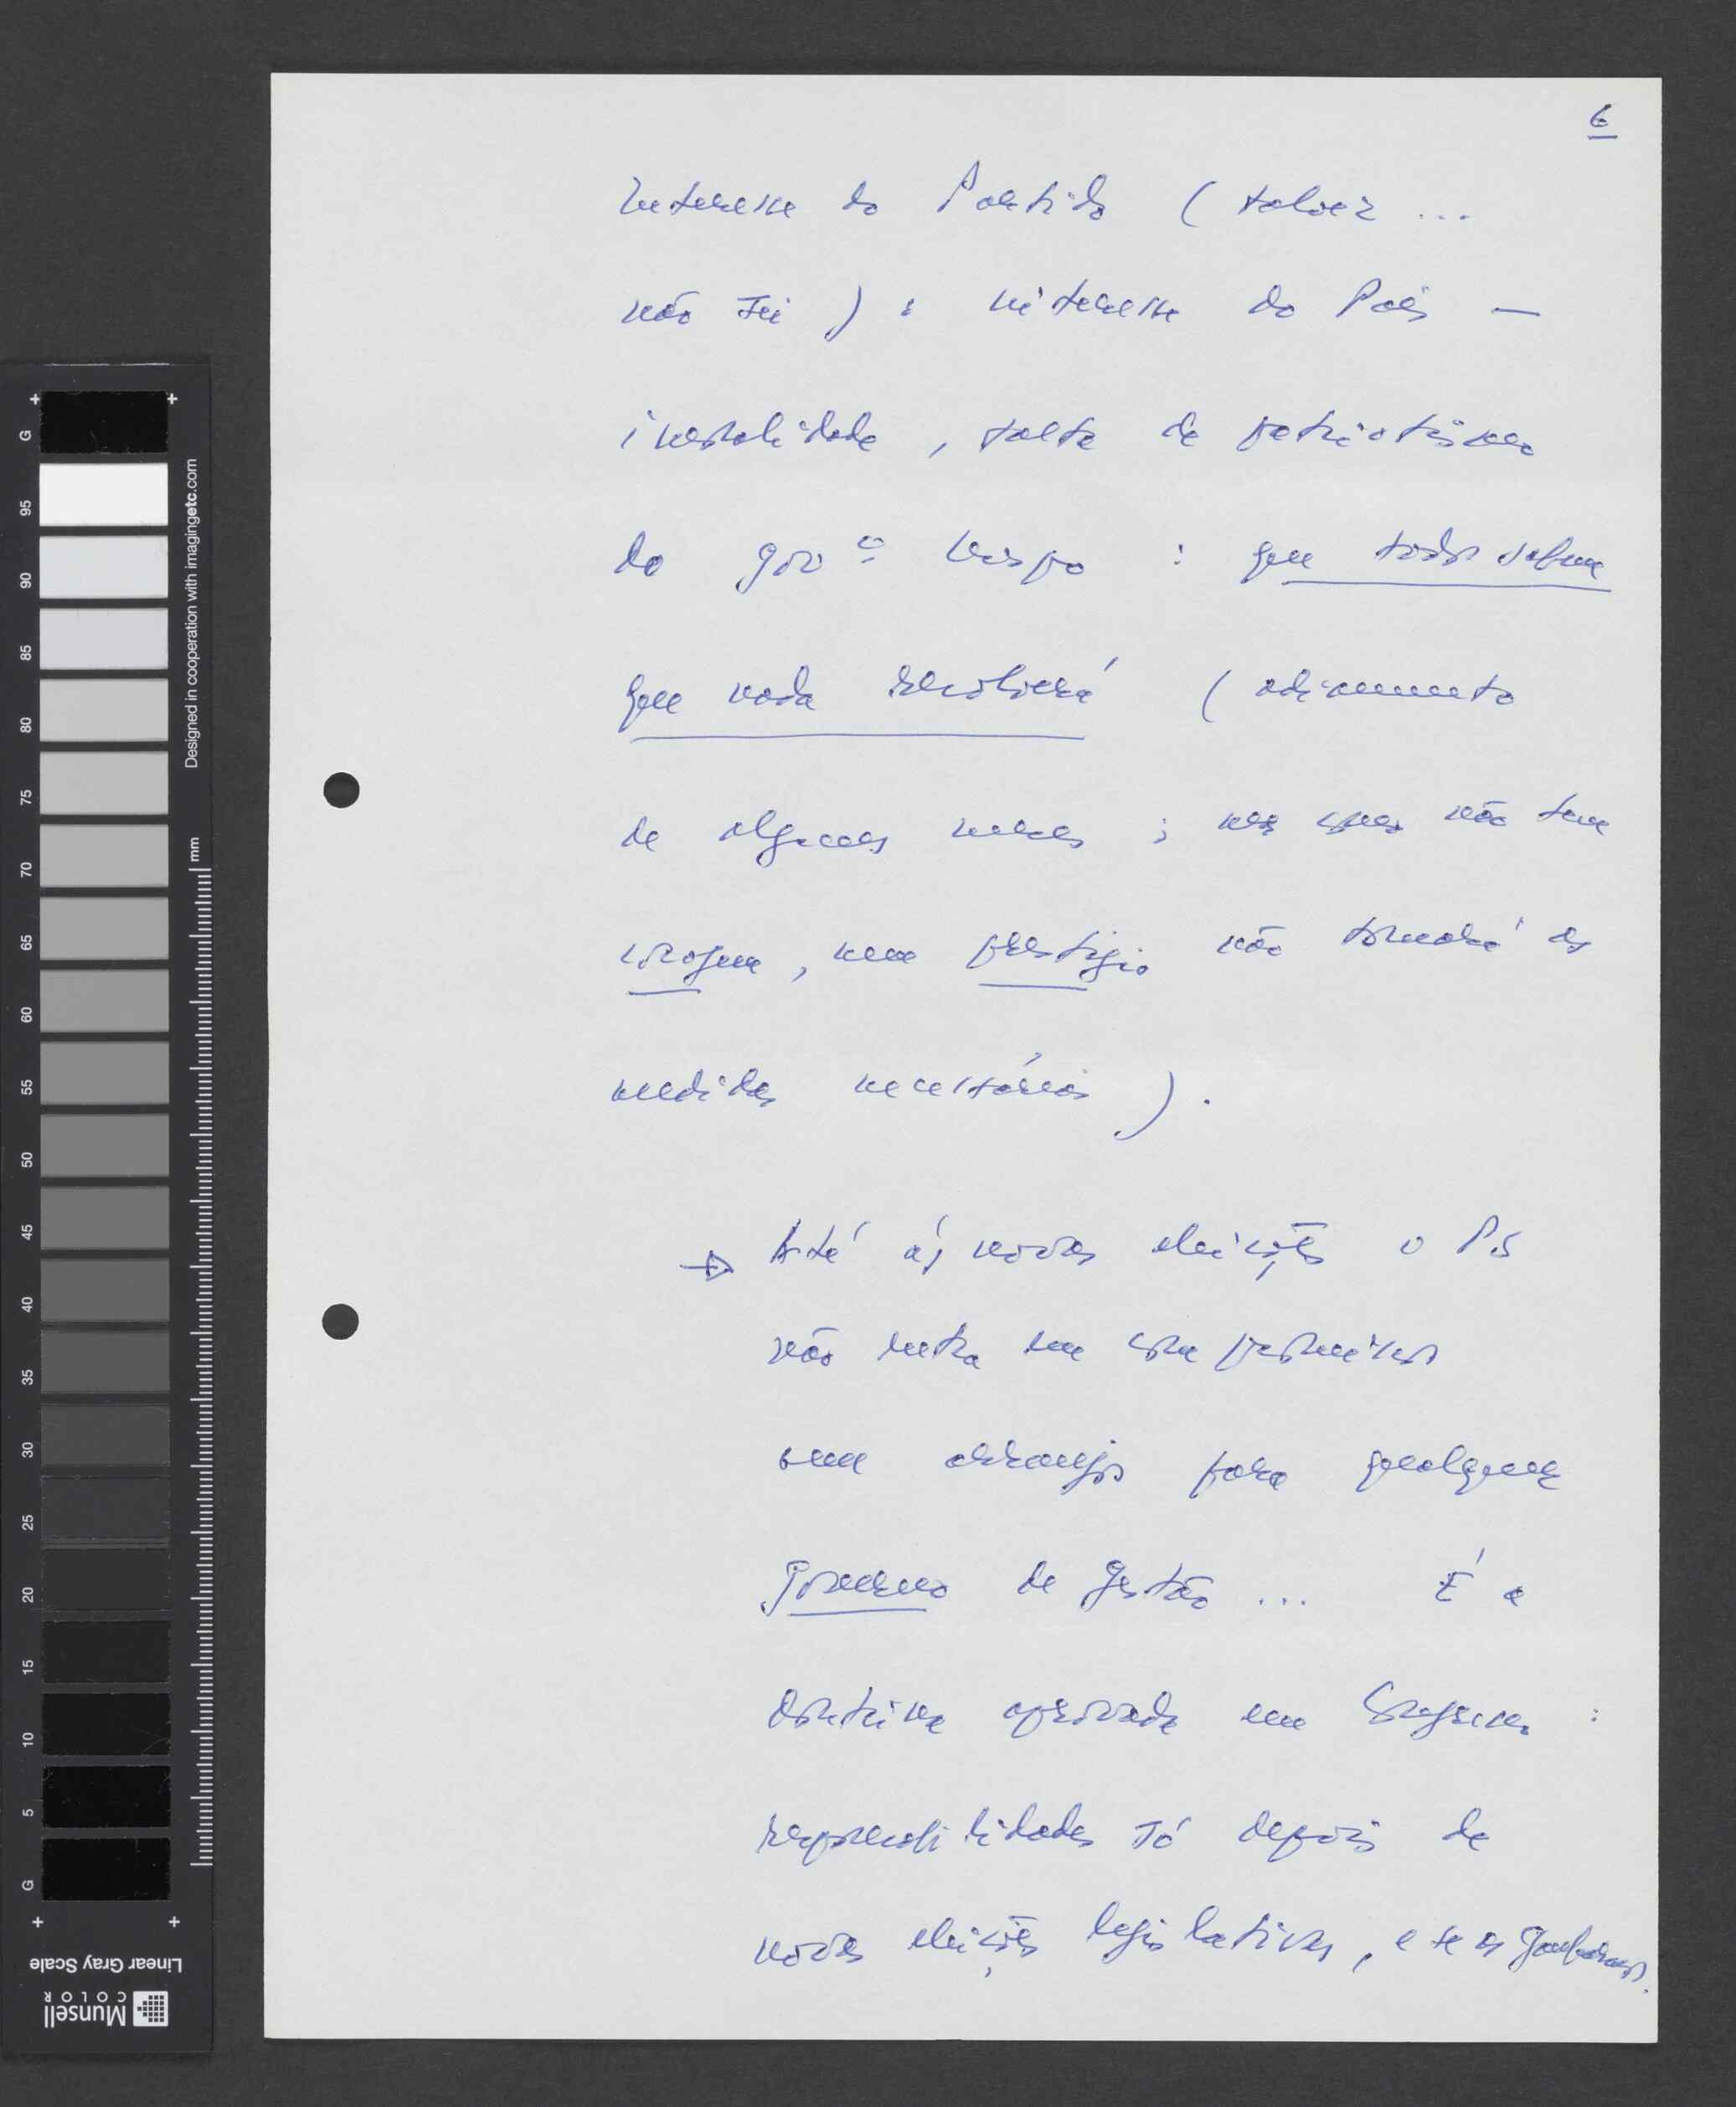 6
Interesse do Partido (talvez ...
não sei) : interesse do País —
instabilidade, falta de patriotismo
do gov.º Mas : que todos sabem
que nada resolverá (adiamento
de alguns meses ; não tem
coragem, nem prestígio não tomará as
medidas necessárias).
→ Até às novas eleições o PS
não entra em compromissos
nem arranjos para qualquer
governo de gestão ... É a
doutrina aprovada em Congresso :
responsabilidades só depois de
novas eleições legislativas, e se as ganharmos.
G
95
90
85
80
75
70
65
60
55
50
45
40
35
30
25
20
15
10
5
G
Designed in cooperation with imagingetc.com
mm
Linear Gray Scale
Munsell
COLOR